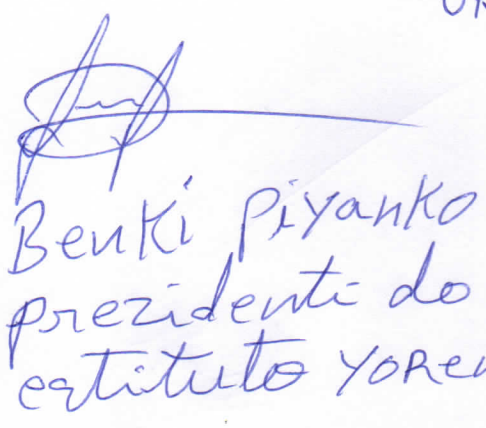 Benki Piyanko
prezidenti do
estituto